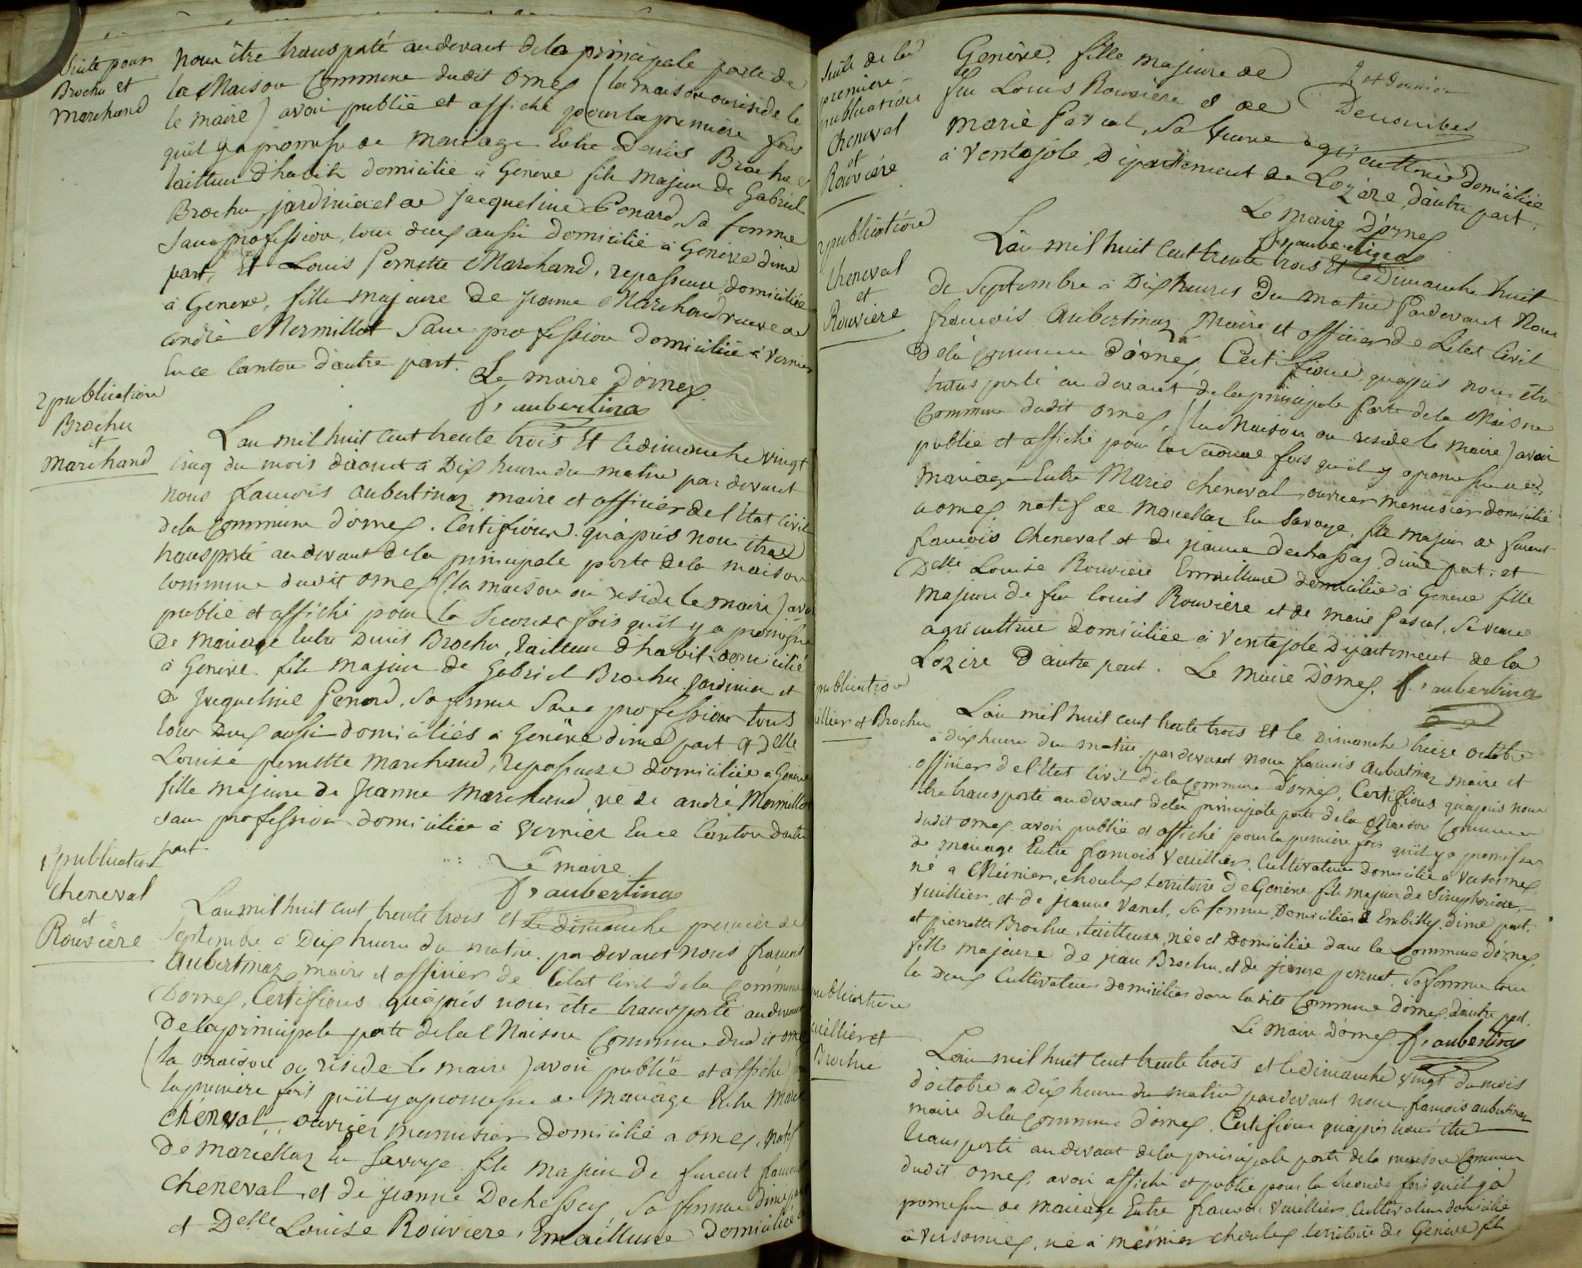 Suite pour
Brochu et
Marchand
Nous être transporté au devant de la principale porte de
la Maison Commune dudit Ornex (la maison ou réside le
le maire) avoir publié et affiché pour la première fois
qu'il y a promesse de Mariage Entre Denis Brochu
tailleur d'habits domicilié à Geneve fils majeur de Gabriel
Brochu, jardinier et de Jacqueline Penard, Sa femme
Sans profession, tous deux aussi domicilié à Genève d'une
part, Et Louis Pernette Marchand, repasseuse domiciliée
à Geneve, fille majeure de Jeanne Marchand veuve de
André Mermillot Sans profession domiciliée à Vernier
En ce Canton d'autre part.
Le maire d'ornex
fs aubertinaz
2 publication
Brochu
et
Marchand
L'an mil huit cent trente trois Et le dimanche vingt
cinq du mois d'aout à Dix heures du matin par devant
nous francois aubertinaz maire et officier de l'état civil
de la Commune d'ornex. Certifions qu'après nous être
transporté au devant de la principale porte de la maison
commune dudit ornex (la maison ou réside le maire) avoir
publié et affiché pour la seconde fois qu'il y a promesse
De mariage entre Denis Brochu, Tailleur d'habit domicilié
à Geneve fils majeur de Gabriel Brochu jardinier et
De Jacqueline Penard, Sa femme Sans profession tous
tous deux aussi domiciliés à Genève d'une part et Delle
Louise pernette Marchand, repasseuse domiciliée à Genève
fille majeure de Jeanne Marchand ve de andré Mermillot
sans profession domiciliée à Vernier En ce Canton d'autre
part.
Le maire
fs aubertinaz
1 publication
Cheneval
et
Rouvière
L'an mil huit cent trente trois et le dimanche premier de
Septembre à Dix heures du matin par devant nous francois
Aubertinaz maire et officier de l'état civil de la Commune
Dornex, Certifions qu'après nous être transporté au devant
De la principale porte de la Maison Commune dudit ornex
(la maison ou réside le maire) avoir publié et affiché
la première fois qu'il y a promesse de Mariage Entre Marie
Cheneval ouvrier menuisier domicilié a ornex, natif
De Marcellaz En Savoye fils majeur De furent francois
Cheneval et de Jeanne Dechessaz Sa femme d'une part
et Delle Louise Rouviere, Emailleuse domiciliée
Suite de la
première
publication
Cheneval
et
Rouvière
Genève, fille majeure de
feu Louis Rouvière et de
Marie Pascal, Sa veuve agricultrice domiciliée
à Ventajole, Département de Lozère, d'autre part.
Le maire D'ornex
fs aubertinaz
2 publication
Cheneval
et
Rouviere
L'an mil huit cent trente trois Et le Dimanche huit
de Septembre à Dix heures Du matin Pardevant Nous
francois Aubertinaz Maire et officier de L'etat Civil
De la commune d'ornex, Certifions, qu'après nous être
transporté au devant de la principale porte de la Maison
Commune dudit ornex, (la Maison ou reside le Maire) avoir
publié et affiché pour la seconde fois qu'il y a promesse de
Mariage Entre Marie Cheneval ouvrier menuisier domicilié
a ornex natif de Marcellaz En Savoye, fils majeur de furent
francois Cheneval et de jeanne dechessaz, d'une part: et
Delle Louise Rouvière Emailleuse domiciliée à Geneve fille
Majeure de feu Louis Rouvière et de Marie Pascal, Sa veuve
agricultrice domiciliée à Ventajole Département de la
Lozère D'autre part. Le Maire D'ornex. fs aubertinaz
publication
et Brochu
L'an mil huit cent trente trois Et le dimanche treize octobre
à dix heures du matin pardevant nous francois Aubertinaz maire et
officier de l'Etat civil de la Commune d'ornex, Certifions qu'après nous
être transporté au devant de la principale porte de la Maison Commune
dudit ornex avoir publié et affiché pour la première fois qu'il y a promesse
de mariage Entre francois Vuillier, Cultivateur domicilié à Versonnex,
né a Meinier, choulex territoire de Genève fils majeur de Simphorien
Vuillier, et de jeanne Vanel, Sa femme, Domiciliés à Embilly, d'une part.
et pierrette Brochu, tailleuse, née et Domiciliée dans la Commune d'ornex,
fille majeure de jean Brochu et de jeanne pernet, Sa femme tous
les deux Cultivateurs domiciliés dans la dite Commune D'ornex d'autre part.
Le Maire d'ornex fs aubertinaz
publication
et
Brochu
L'an mil huit cent trente trois et le dimanche vingt du mois
d'octobre a Dix heures du matin pardevant nous francois aubertinaz
maire de la Commune d'ornex, Certifions qu'après nous être
transporté au devant de la principale porte de la maison Commune
dudit ornex avoir affiché et publié pour la seconde fois qu'il y a
promesse de mariage Entre francois Vuillier, Cultivateur domicilié
à Versonnex, né à meinier choulex territoire de Genève fils